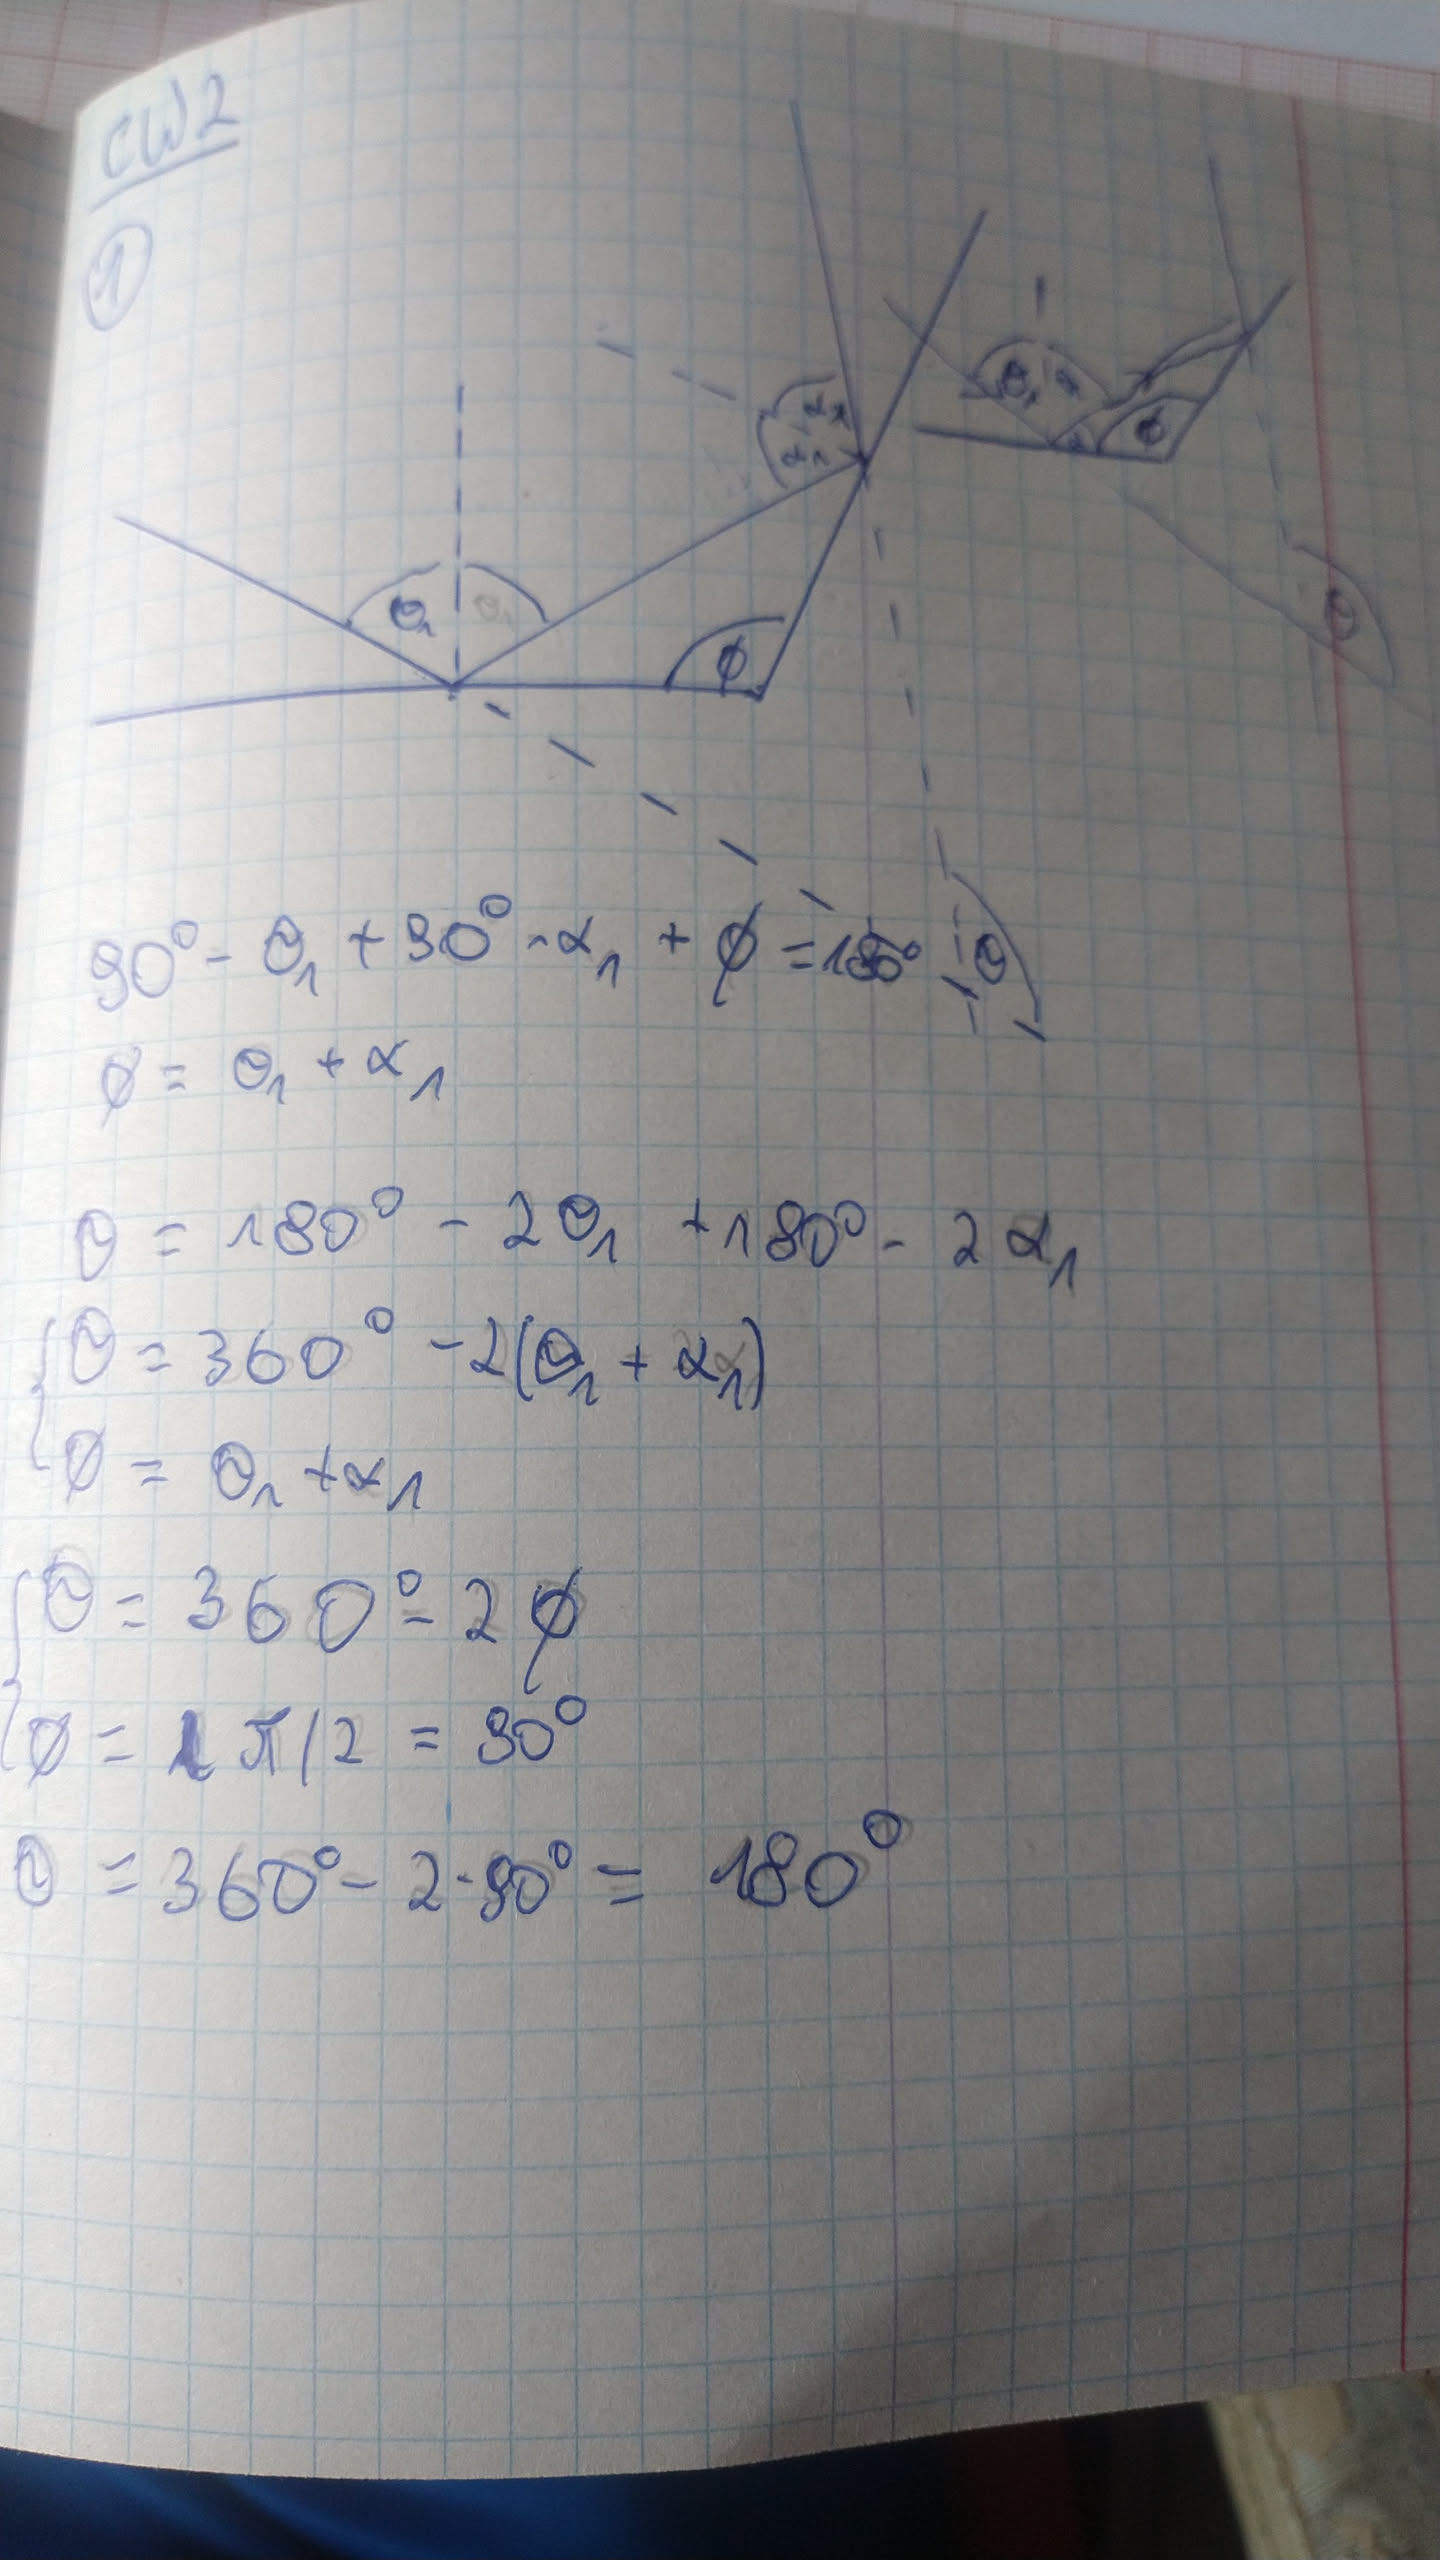 CW2
1
α₁
α₁
θ₁
α
ϕ
θ₁
θ₁
ϕ
θ
90° - θ₁ + 90° - α₁ + ϕ = 180°
θ
ϕ = θ₁ + α₁
θ = 180° - 2θ₁ + 180° - 2α₁
θ = 360° - 2(θ₁ + α₁)
ϕ = θ₁ + α₁
θ = 360° - 2ϕ
ϕ = π/2 = 90°
θ = 360° - 2·90° = 180°